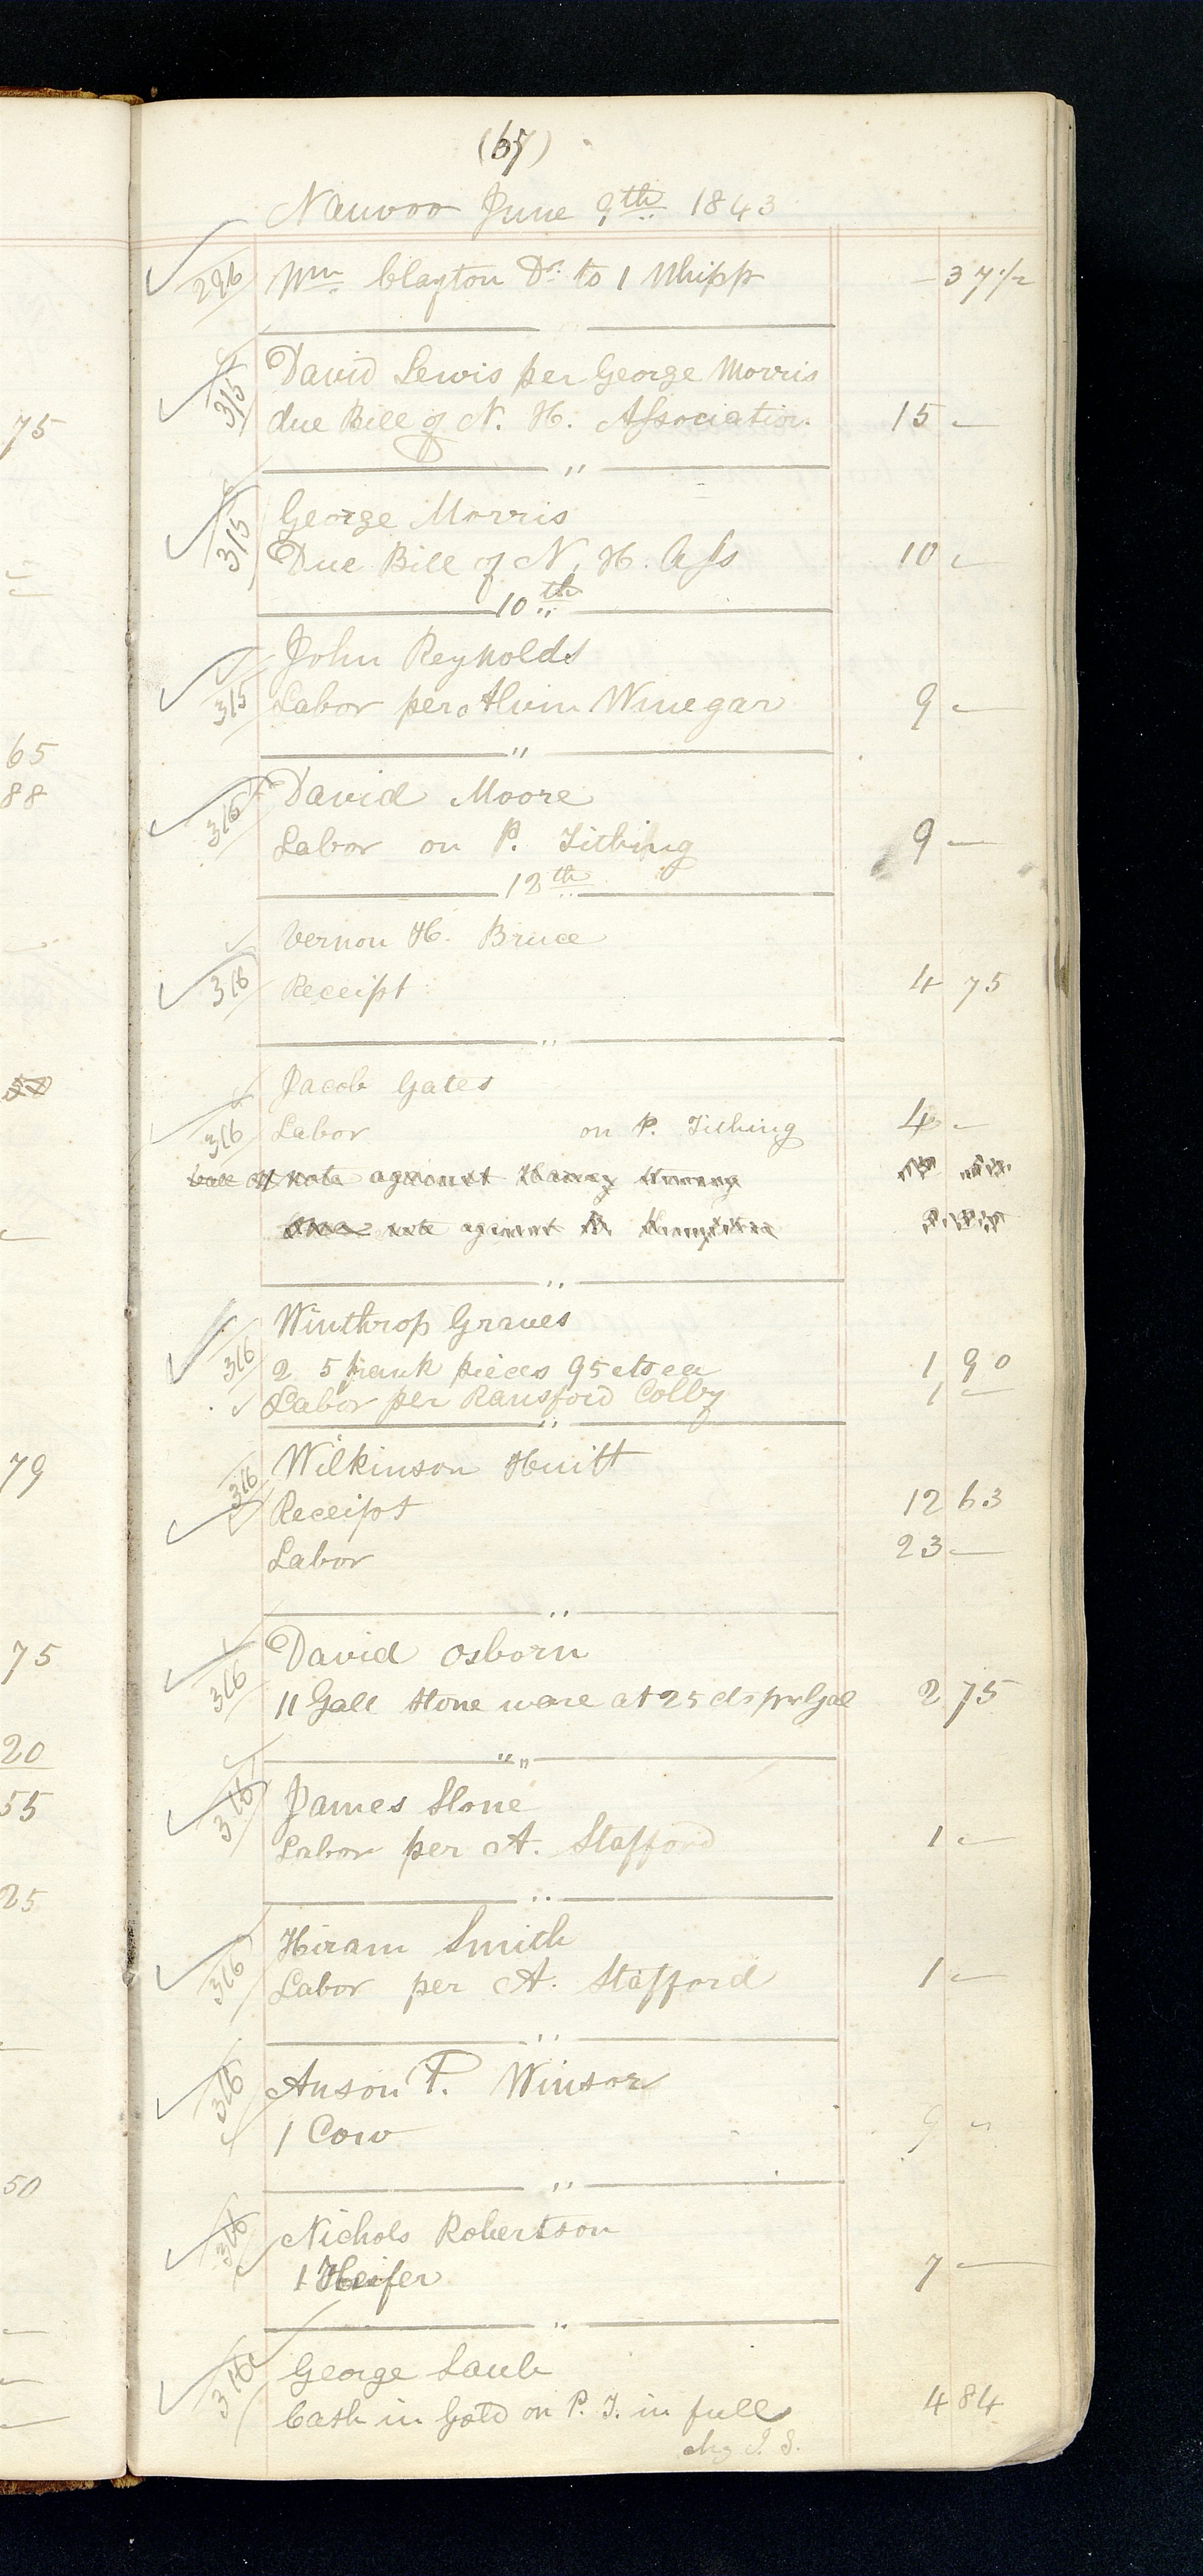 (67)
Nauvoo June 9th 1843
296 Wm Clayton Dr. to 1 Whipp — 37 1/2
"
315 David Lewis per George Morris
due Bill of N. H. Association. 15 —
"
315 George Morris
Due Bill of N. H. Ass 10 —
10th
John Reynolds
315 Labor per Alvin Winegar 9 —
"
316 David Moore
Labor on P. Tithing 9 —
12th
Vernon H. Bruce
316 Receipt 4 75
"
Jacob Gates
316 Labor on P. Tithing 4 —
note against
note against
"
Winthrop Graves
316 2 5 frank pieces 95 cts ea 1 90
Labor per Ransford Colby 1 —
"
316 Wilkinson Huitt
Receipt 12 63
Labor 23 —
"
David Osborn
316 11 Gall Stone ware at 25 cts pr Gal 2 75
"
316 James Stone
Labor per A. Stafford 1 —
"
Hiram Smith
316 Labor per A. Stafford 1 —
"
316 Anson P. Winsor
1 Cow 9 "
"
316 Nichols Robertson
1 Heifer 7 —
"
316 George Laub
Cash in Gold on P. T. in full 4 84
chg J. S.
75
65
88
79
75
20
55
25
50